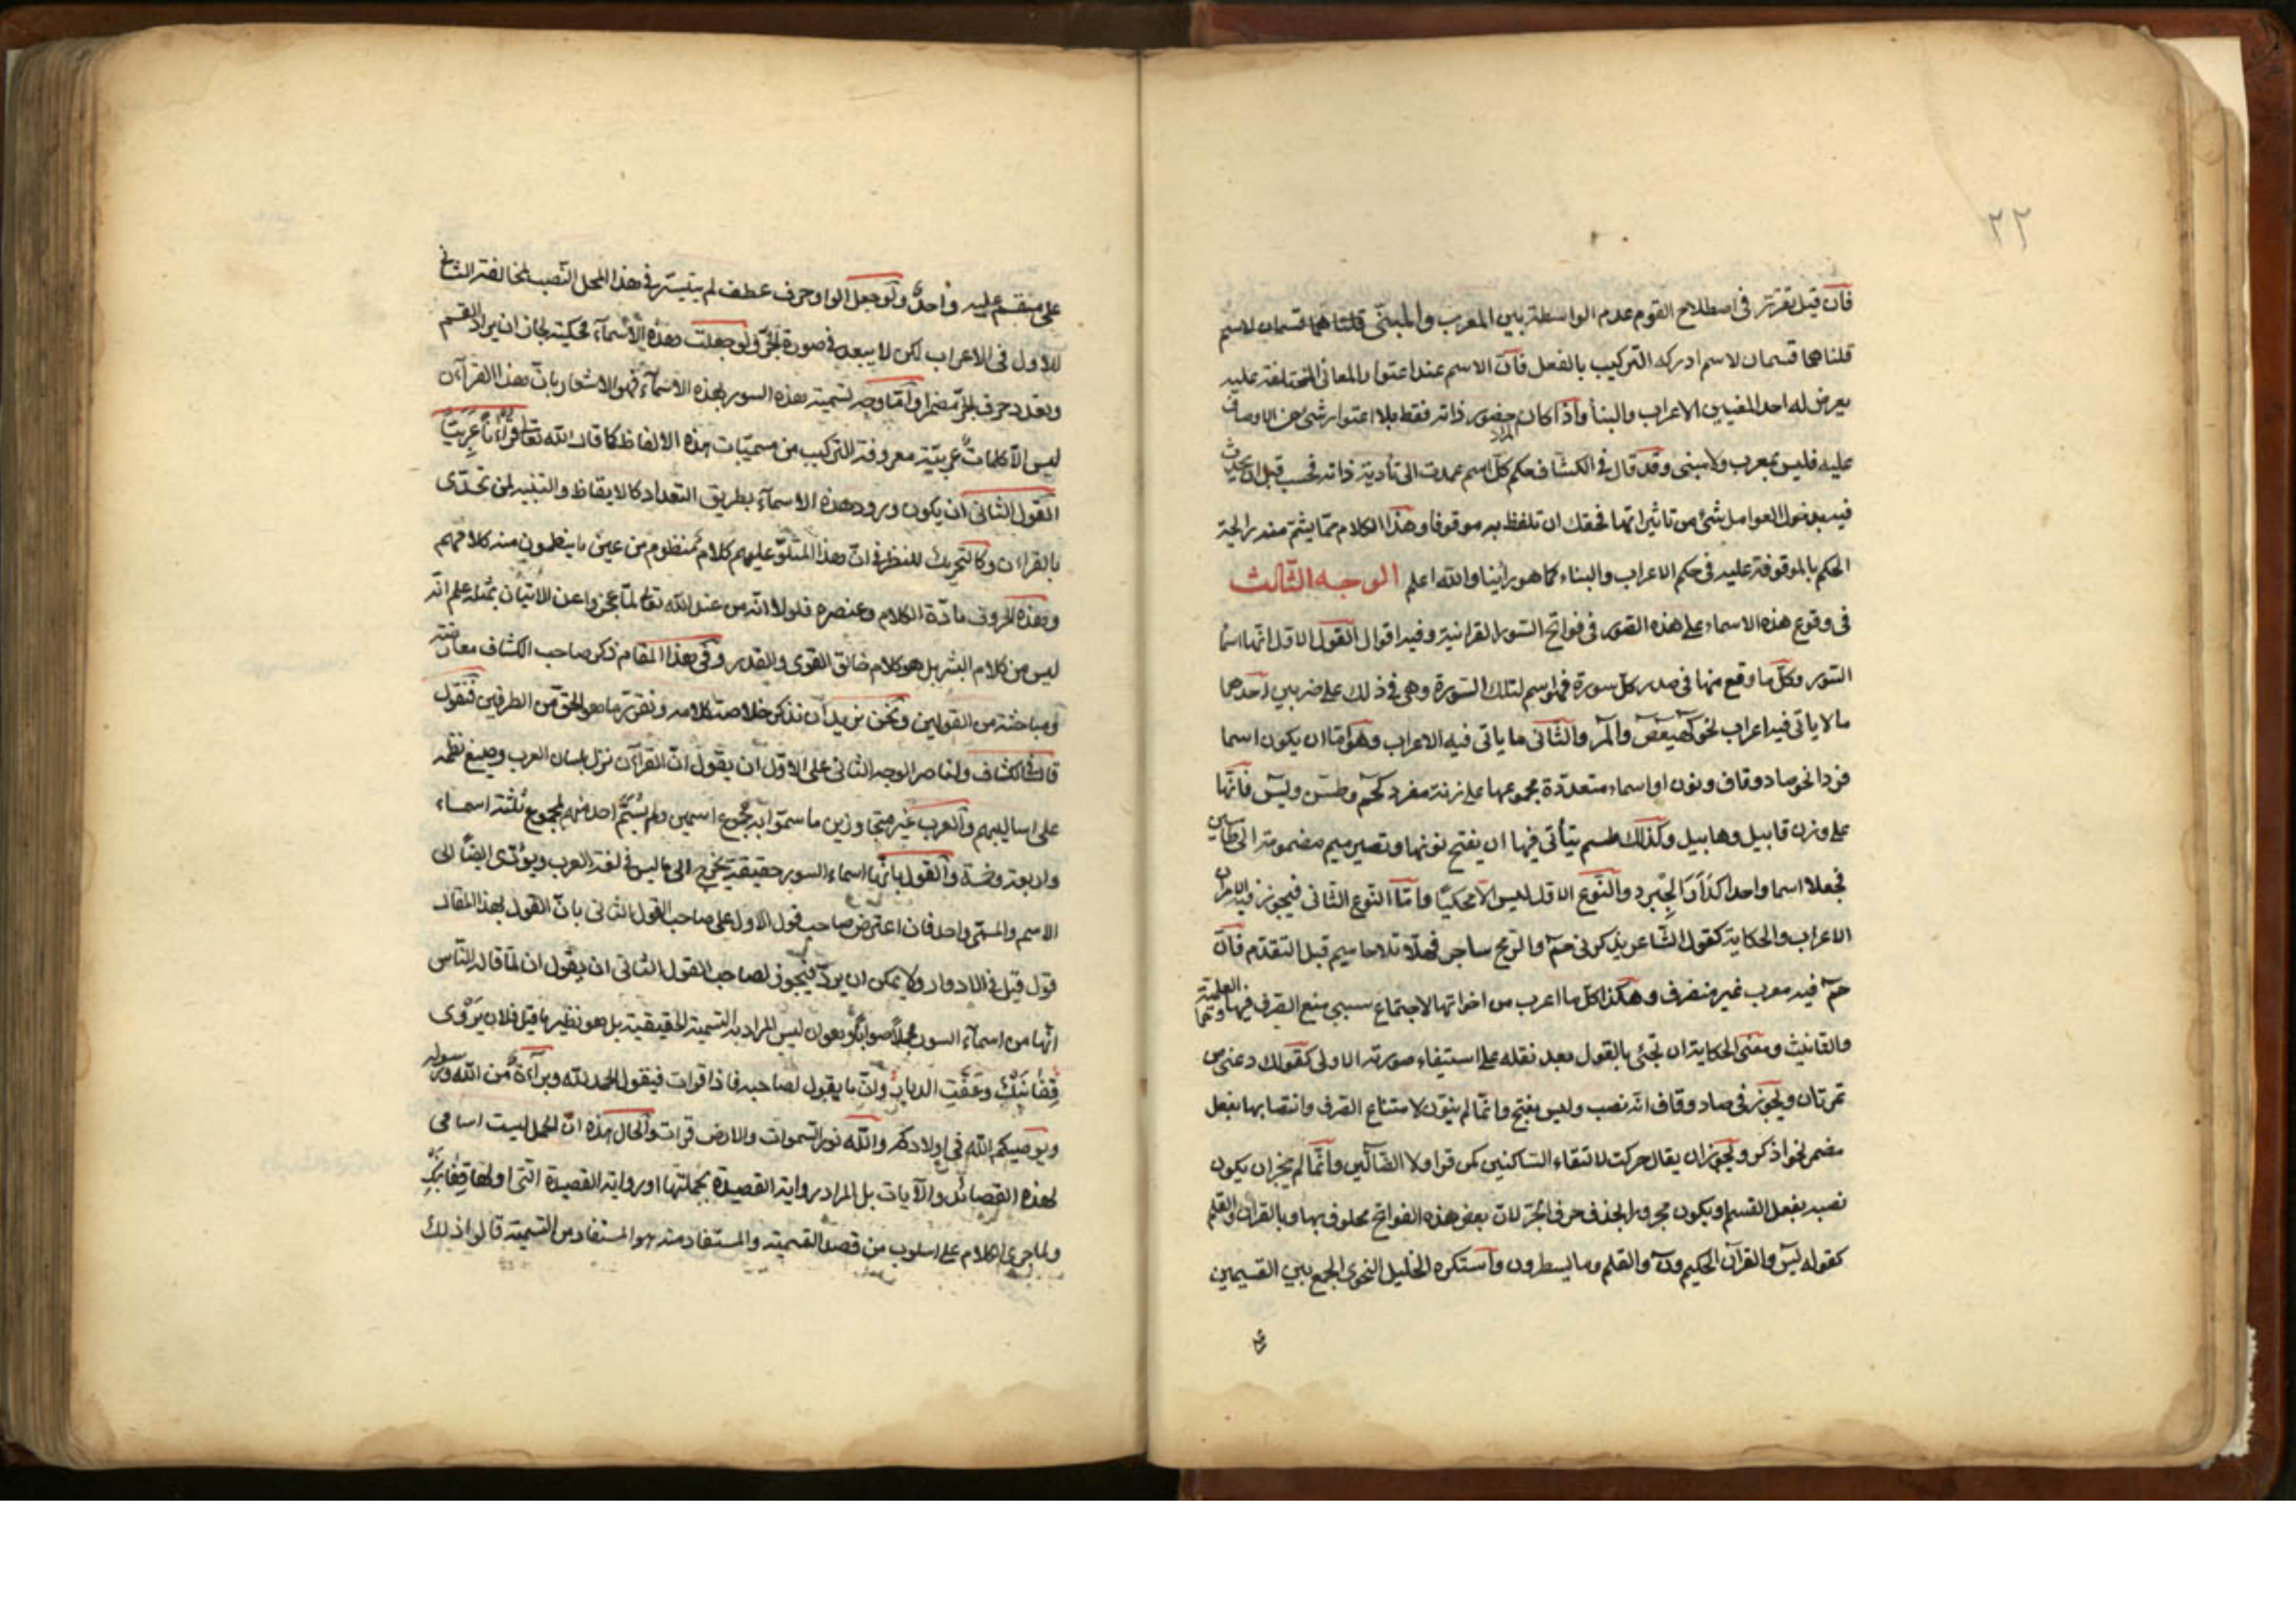 ٢٢
فان قيل تقرر في اصطلاح القوم عدم الواسطة بين المعرب والمبنى قلنا هما قسمان لاسم
قلنا هما قسمان لاسم ادركه التركيب بالفعل فان الاسم عند اعتوار المعانى المختلفة عليه
يعرض له احد المعنيين الاعراب والبنا واذا كان المراد حضور ذاته فقط بلا اعتوار شئ من الاوصاف
عليه فليس بمعرب ولا مبنى وقد قال في الكشاف حكم كل اسم عمدت الى تأدية ذاته فحسب قبل ان يحدث
فيه بدخول العوامل شئ من تاثيراتها فحقك ان تلفظ به موقوفا وهذا الكلام مما يشم منه رايحة
الحكم بالموقوفة عليه في حكم الاعراب والبناء كما هو رأينا والله اعلم الوجه الثالث
في وقوع هذه الاسماء على هذه الصور في فواتح السور القرانية وفيه اقوال القول الاول انها اسما
السور وكل ما وقع منها في صدر كل سورة فهو اسم لتلك السورة وهي في ذلك على ضربين احدهما
مالا ياتى فيه اعراب نحو كهيعص والمر والثانى ما ياتى فيه الاعراب وهو اما ان يكون اسما
فردا نحو صاد وقاف ونون او اسماء متعددة مجموعها على زنة مفرد كحم وطس ويس فانها
على وزن قابيل وهابيل وكذلك طسم يتأتى فيها ان يفتح نونها وتصير ميم مضمومة الى طاسين
فجعلا اسما واحدا كدارابجرد والنوع الاول ليس الا محكيا واما النوع الثانى فيجوز فيه الامران
الاعراب والحكاية كقول الشاعر يذكرنى حم والرمح شاجر فهلا تلا حاميم قبل التقدم فان
حم فيه معرب غير منصرف وهكذا كل ما اعرب من اخواتها لاجتماع سببي منع الصرف فيها وهما العلمية
والتانيث ومعنى الحكاية ان تجئ بالقول بعد نقله على استيفاء صورته الاولى كقولك دعنى من
تمرتان ويجوز في صاد وقاف انه نصب وليس بفتح وانما لم ينون لامتناع الصرف وانتصابها بفعل
مضمر نحو اذكر ويجوز ان يقال حركت لالتقاء الساكنين كمن قرا ولا الضالين وانما لم يجز ان يكون
نصبه بفعل القسم او يكون مجرورا بحذف حرف الجر لان بعض هذه الفواتح محلوف بها وبالقران والقلم
كقوله يس والقرآن الحكيم ون والقلم وما يسطرون واستكره الخليل النحوى الجمع بين القسيمين
على مقسم عليه واحد ولو جعل الواو حرف عطف لم يتيسر في هذا المحل النصب لمخالفة الثانى
للاول في الاعراب لكن لا يبعد في صورة الجر ولو جعلت هذه الاسماء محكية لجاز ان يراد القسم
ويقدر حرف الجر مضمرا واما وجه تسمية هذه السور بهذه الاسماء فهو الاشعار بان هذا القرآن
ليس الا كلمات عربية معروفة التركيب من مسميات هذه الالفاظ كما قال الله تعالى قرانا عربيا
القول الثانى ان يكون ورود هذه الاسماء بطريق التعداد كالايقاظ والتنبيه لمن تحدى
بالقرآن وكالتحريك للنظر في ان هذا المتلو عليهم كلام منظوم من عين ما ينظمون منه كلامهم
وهذه الحروف مادة الكلام وعنصره فلولا انه من عند الله تعالى لما عجزوا عن الاتيان بمثله علم انه
ليس من كلام البشر بل هو كلام خالق القوى والقدر وفي هذا المقام ذكر صاحب الكشاف معارضة
ومباحثة من القولين ونحن نريد ان نذكر خلاصة كلامه ونقرر ما هو الحق من الطرفين فنقول
قال في الكشاف ولناصر الوجه الثانى على الاول ان يقول ان القرآن نزل بلسان العرب وصيغ نظمه
على اساليبهم والعرب غير متجاوزين ما سموا به مجموع اسمين ولم يسم احد منهم بمجموع ثلثة اسماء
واربعة وخمسة والقول بانها اسماء السور حقيقة يخرج الى ما ليس في لغة العرب ويؤدى ايضا الى
الاسم والمسمى واحد فان اعترض صاحب قول الاول على صاحب القول الثانى بان القول بهذا المقال
قول قيل في الادوار ولا يمكن ان يرد فيجوز لصاحب القول الثانى ان يقول ان لما قاله الناس
انها من اسماء السور محملا صوابا وهو ان ليس المراد به التسمية الحقيقية بل هو نظير ما قيل فلان يروى
قفا نبك وعفت الديار وان ما يقول لصاحبه فاذا قرات فيقول الحمد لله وبراءة من الله ورسوله
ويوصيكم الله في اولادكم والله نور السموات والارض قرات والحال هذه ان الجمل ليست اسامى
لهذه القصائد والآيات بل المراد رواية القصيدة بجملتها او رواية القصيدة التى اولها قفا نبك
ولما جرى الكلام على اسلوب من قصد التسمية والمستفاد منه هو المستفاد من التسمية قالوا ذلك